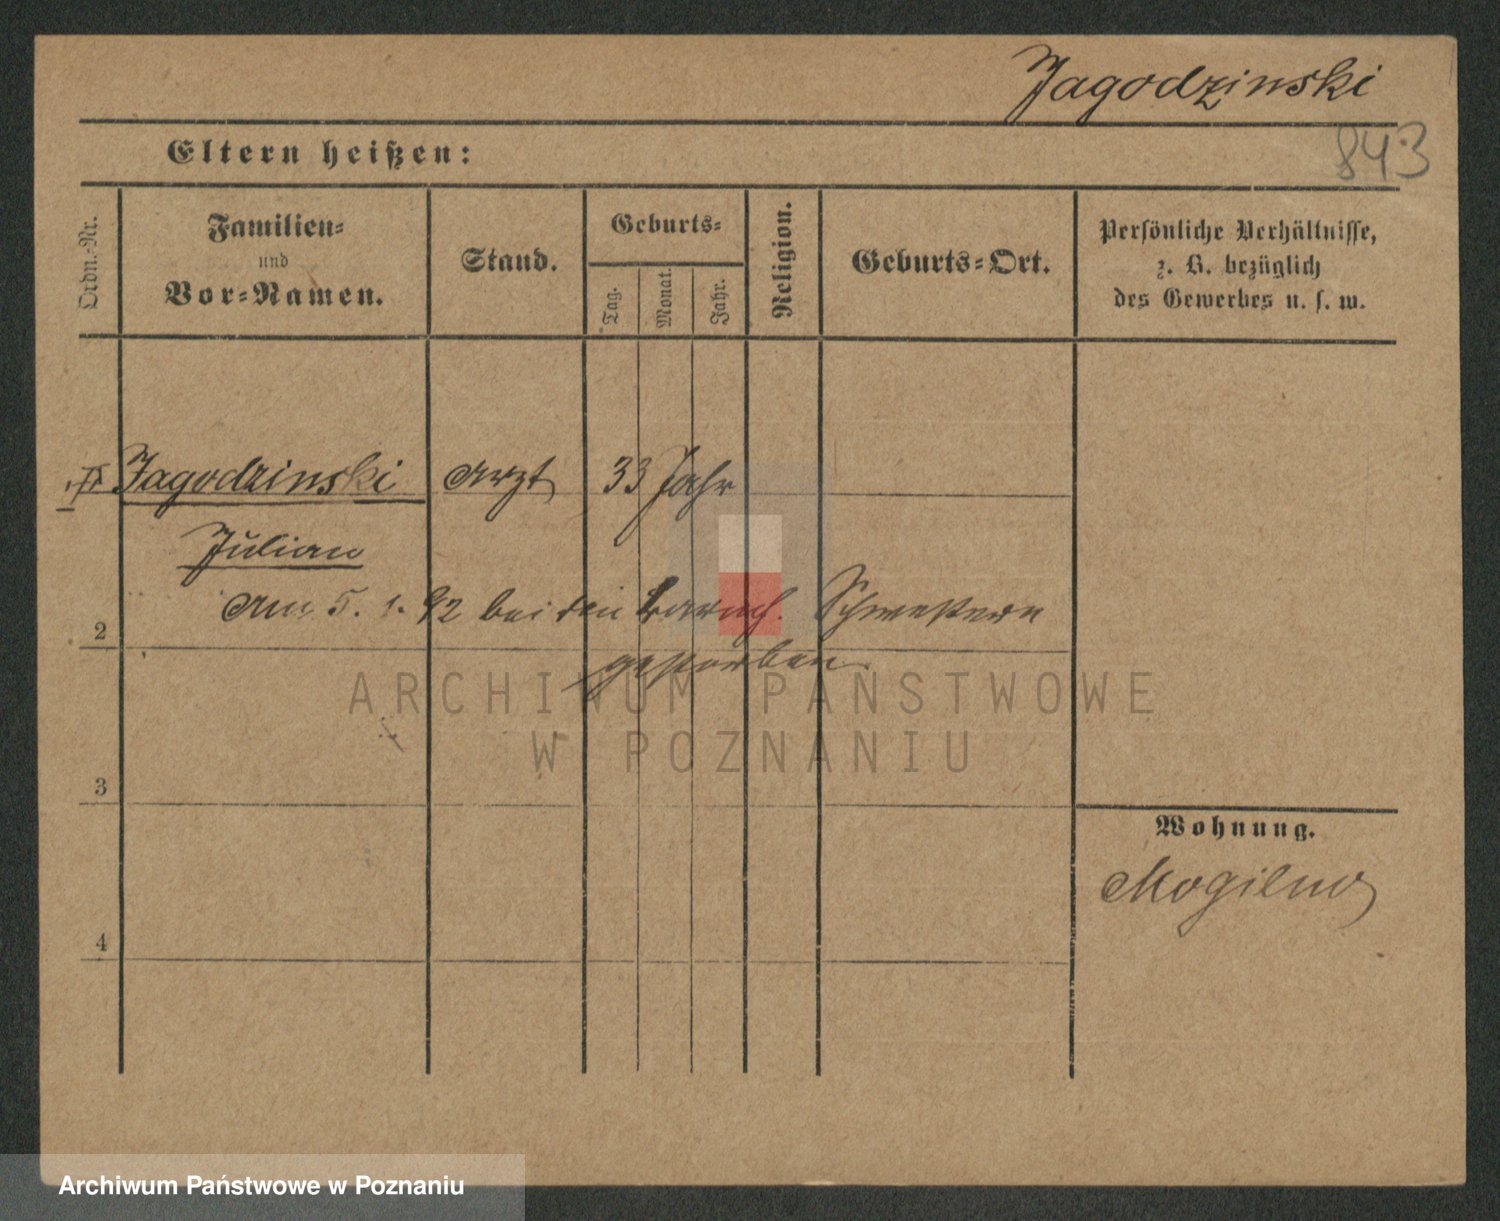 Jagodzinski
843
Eltern heißen:
Ordn.-Nr.
Familien-
und
Vor-Namen.
Stand.
Geburts-
Tag.
Monat.
Jahr.
Religion.
Geburts-Ort.
Persönliche Verhältnisse,
z. B. bezüglich
des Gewerbes u. s. w.
Jagodzinski Arzt 33 Jahr
Julian
Am 5. 1. 92 bei den barmh. Schwestern
2
gestorben.
ARCHIWUM PAŃSTWOWE
W POZNANIU
3
Wohnung.
Mogilno
4
Archiwum Państwowe w Poznaniu